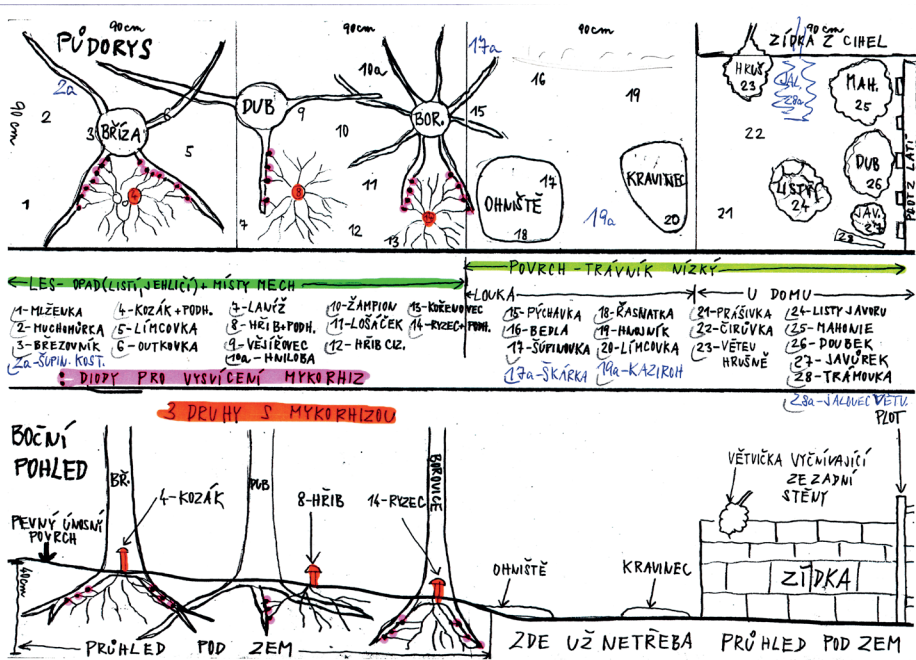 90cm 90cm 90cm 90cm
PŮDORYS
90 cm
ZÍDKA Z CIHEL
2a
2
3 BŘÍZA
5
4
1
DUB
9
8
7
10a
10
11
12
13
BOR.
14
17a
15
16
19
OHNIŠTĚ
17
18
19a
KRAVINEC
20
HRUŠ
23
JAL.
28a
MAH.
25
22
LISTÍ
24
DUB
26
21
JAV.
27
28
PLOT Z LATÍ
LES - OPAD (LISTÍ, JEHLIČÍ) + MÍSTY MECH
POVRCH - TRÁVNÍK NÍZKÝ
LOUKA
U DOMU
1-MLŽENKA
2-MUCHOMŮRKA
3-BŘEZOVNÍK
2a-ŠUPIN. KOST.
4-KOZÁK + PODH.
5-LÍMCOVKA
6-OUTKOVKA
7-LANÝŽ
8-HŘIB + PODH.
9-VĚJÍŘOVEC
10a-HNILOBA
10-ŽAMPION
11-LOŠÁČEK
12-HŘIB CIZ.
13-KOŘENOVEC
14-RYZEC + PODH.
15-PÝCHAVKA
16-BEDLA
17-ŠUPINOVKA
17a-ŠKÁRKA
18-ŘASNATKA
19-HNOJNÍK
20-LÍMCOVKA
19a-KAZIROH
21-PRÁŠIVKA
22-ČIRŮVKA
23-VĚTEV
HRUŠNĚ
24-LISTY JAVORU
25-MAHONIE
26-DOUBEK
27-JAVŮREK
28-TRÁMOVKA
28a-JALOVEC VĚTV.
DIODY PRO VYSVÍCENÍ MYKORHIZ
3 DRUHY S MYKORHIZOU
BOČNÍ
POHLED
PEVNÝ ÚNOSNÝ
POVRCH
40cm
BŘ.
4-KOZÁK
DUB
8-HŘIB
14-RYZEC
BOROVICE
OHNIŠTĚ
KRAVINEC
VĚTVIČKA VYČNÍVAJÍCÍ
ZE ZADNÍ
STĚNY
PLOT
ZÍDKA
PRŮHLED POD ZEM
ZDE UŽ NETŘEBA PRŮHLED POD ZEM